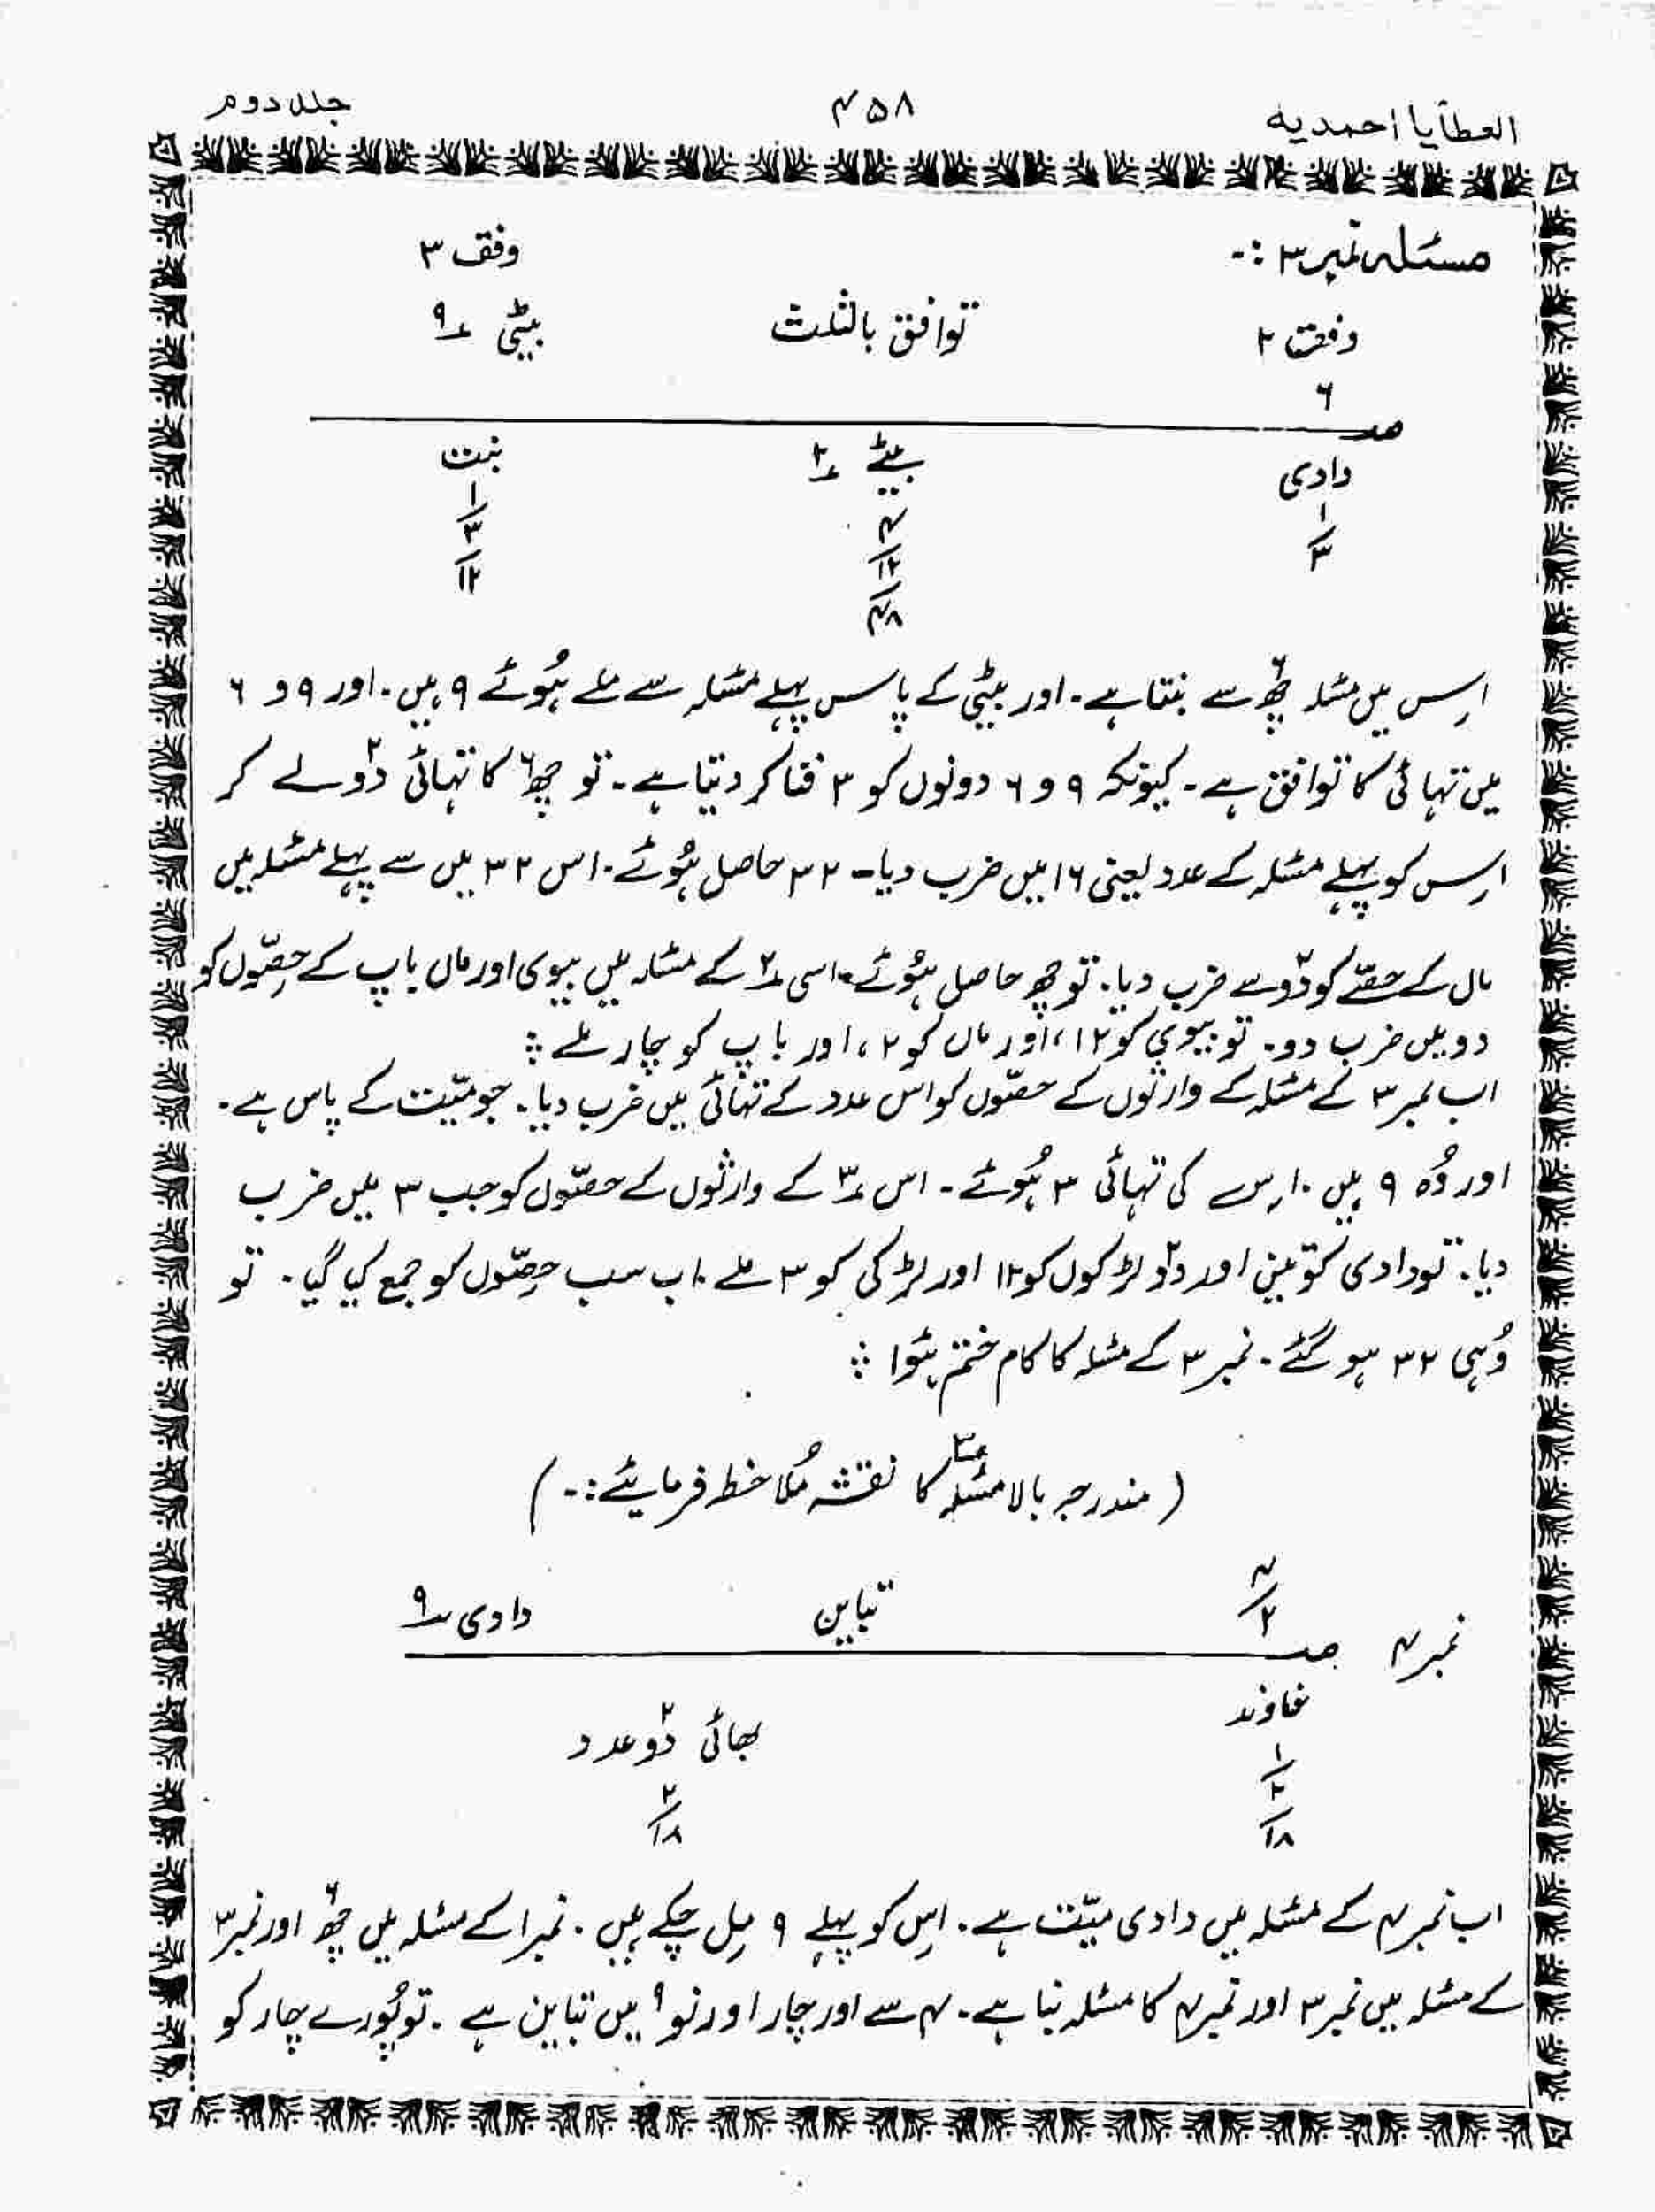 العطایا احمدیہ ۴۵۸ جلد دوم
مسئلہ نمبر ۳ :۔ وفق ۳
وفق ۲ توافق بالثلث بیٹی ؁۹
۶
مـ
دادی بیٹے ؁۲ بنت
۱ ۴ ۱
۳ ۱۲ ۳
۴۸ ۱۲
اِس میں مسئلہ چھ۶ سے بنتا ہے۔ اور بیٹی کے پاس پہلے مسئلہ سے ملے ہُوئے ۹ ہیں۔ اور ۹ و ۶
میں تہائی کا توافق ہے۔ کیونکہ ۹ و ۶ دونوں کو ۳ فنا کر دیتا ہے۔ تو چھ۶ کا تہائی دو۲ لے کر
اِس کو پہلے مسئلہ کے عدد یعنی ۱۶ میں ضرب دیا۔ ۳۲ حاصل ہُوئے۔ اس ۳۲ میں سے پہلے مسئلہ میں
ماں کے حصّے کو دو۲ سے ضرب دیا۔ تو چھ حاصل ہُوئے۔ اسی ؁۲ کے مسئلہ میں بیوی اور ماں باپ کے حِصّوں کو
دو میں ضرب دو۔ تو بیوی کو ۱۲، اور ماں کو ۲، اور باپ کو چار ملے ؞
اب نمبر ۳ کے مسئلہ کے وارثوں کے حصّوں کو اس عدد کے تہائی میں ضرب دیا۔ جو میّت کے پاس ہے۔
اور وُہ ۹ ہیں۔ اِس کی تہائی ۳ ہُوئے۔ اس ؁۳ کے وارثوں کے حصّوں کو جب ۳ میں ضرب
دیا۔ تو دادی کو تین اور دو۲ لڑکوں کو ۱۲ اور لڑکی کو ۳ ملے۔ اب سب حِصّوں کو جمع کیا گیا۔ تو
وُہی ۳۲ ہو گئے۔ نمبر ۳ کے مسئلہ کا کام ختم ہُوا ؞
(مندرجہ بالا مسئلہ ؁۳ کا نقشہ مُلاحظہ فرمایئے:۔)
۴
۲
نمبر ۴ مـ تباین دادی ؁۹
خاوند بھائی دو۲ عدد
۱ ۲
۲ ۱۸
۱۸
اب نمبر ۴ کے مسئلہ میں دادی میّت ہے۔ اِس کو پہلے ۹ مِل چکے ہیں۔ نمبر ۱ کے مسئلہ میں چھ۶ اور نمبر ۳
کے مسئلہ میں نمبر ۳ اور نمبر ۴ کا مسئلہ بنا ہے۔ ۴ سے اور چار اور نو۹ میں تباین ہے۔ تو پُورے چار کو